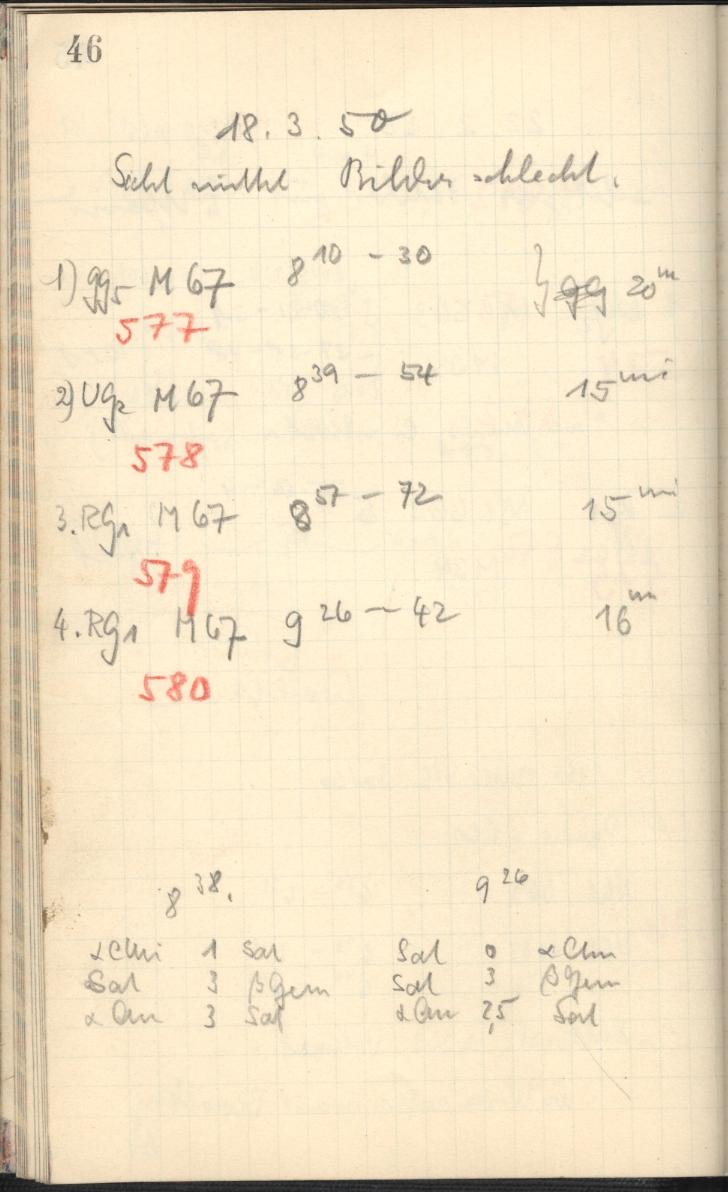 46
18. 3. 50
Sicht mittel Bilder schlecht.
1) gg5 M 67 8 10 - 30 } gg 20 m
577
2) UG2 M 67 8 39 - 54 15 mi
578
3. RG1 M 67 8 57 - 72 15 mi
579
4. RG1 M 67 9 26 - 42 16 m
580
8 38. 9 26
αCMi 1 Sat Sat 0 αCMi
Sat 3 βGem Sat 3 βGem
αCMi 3 Sat αCMi 2,5 Sat